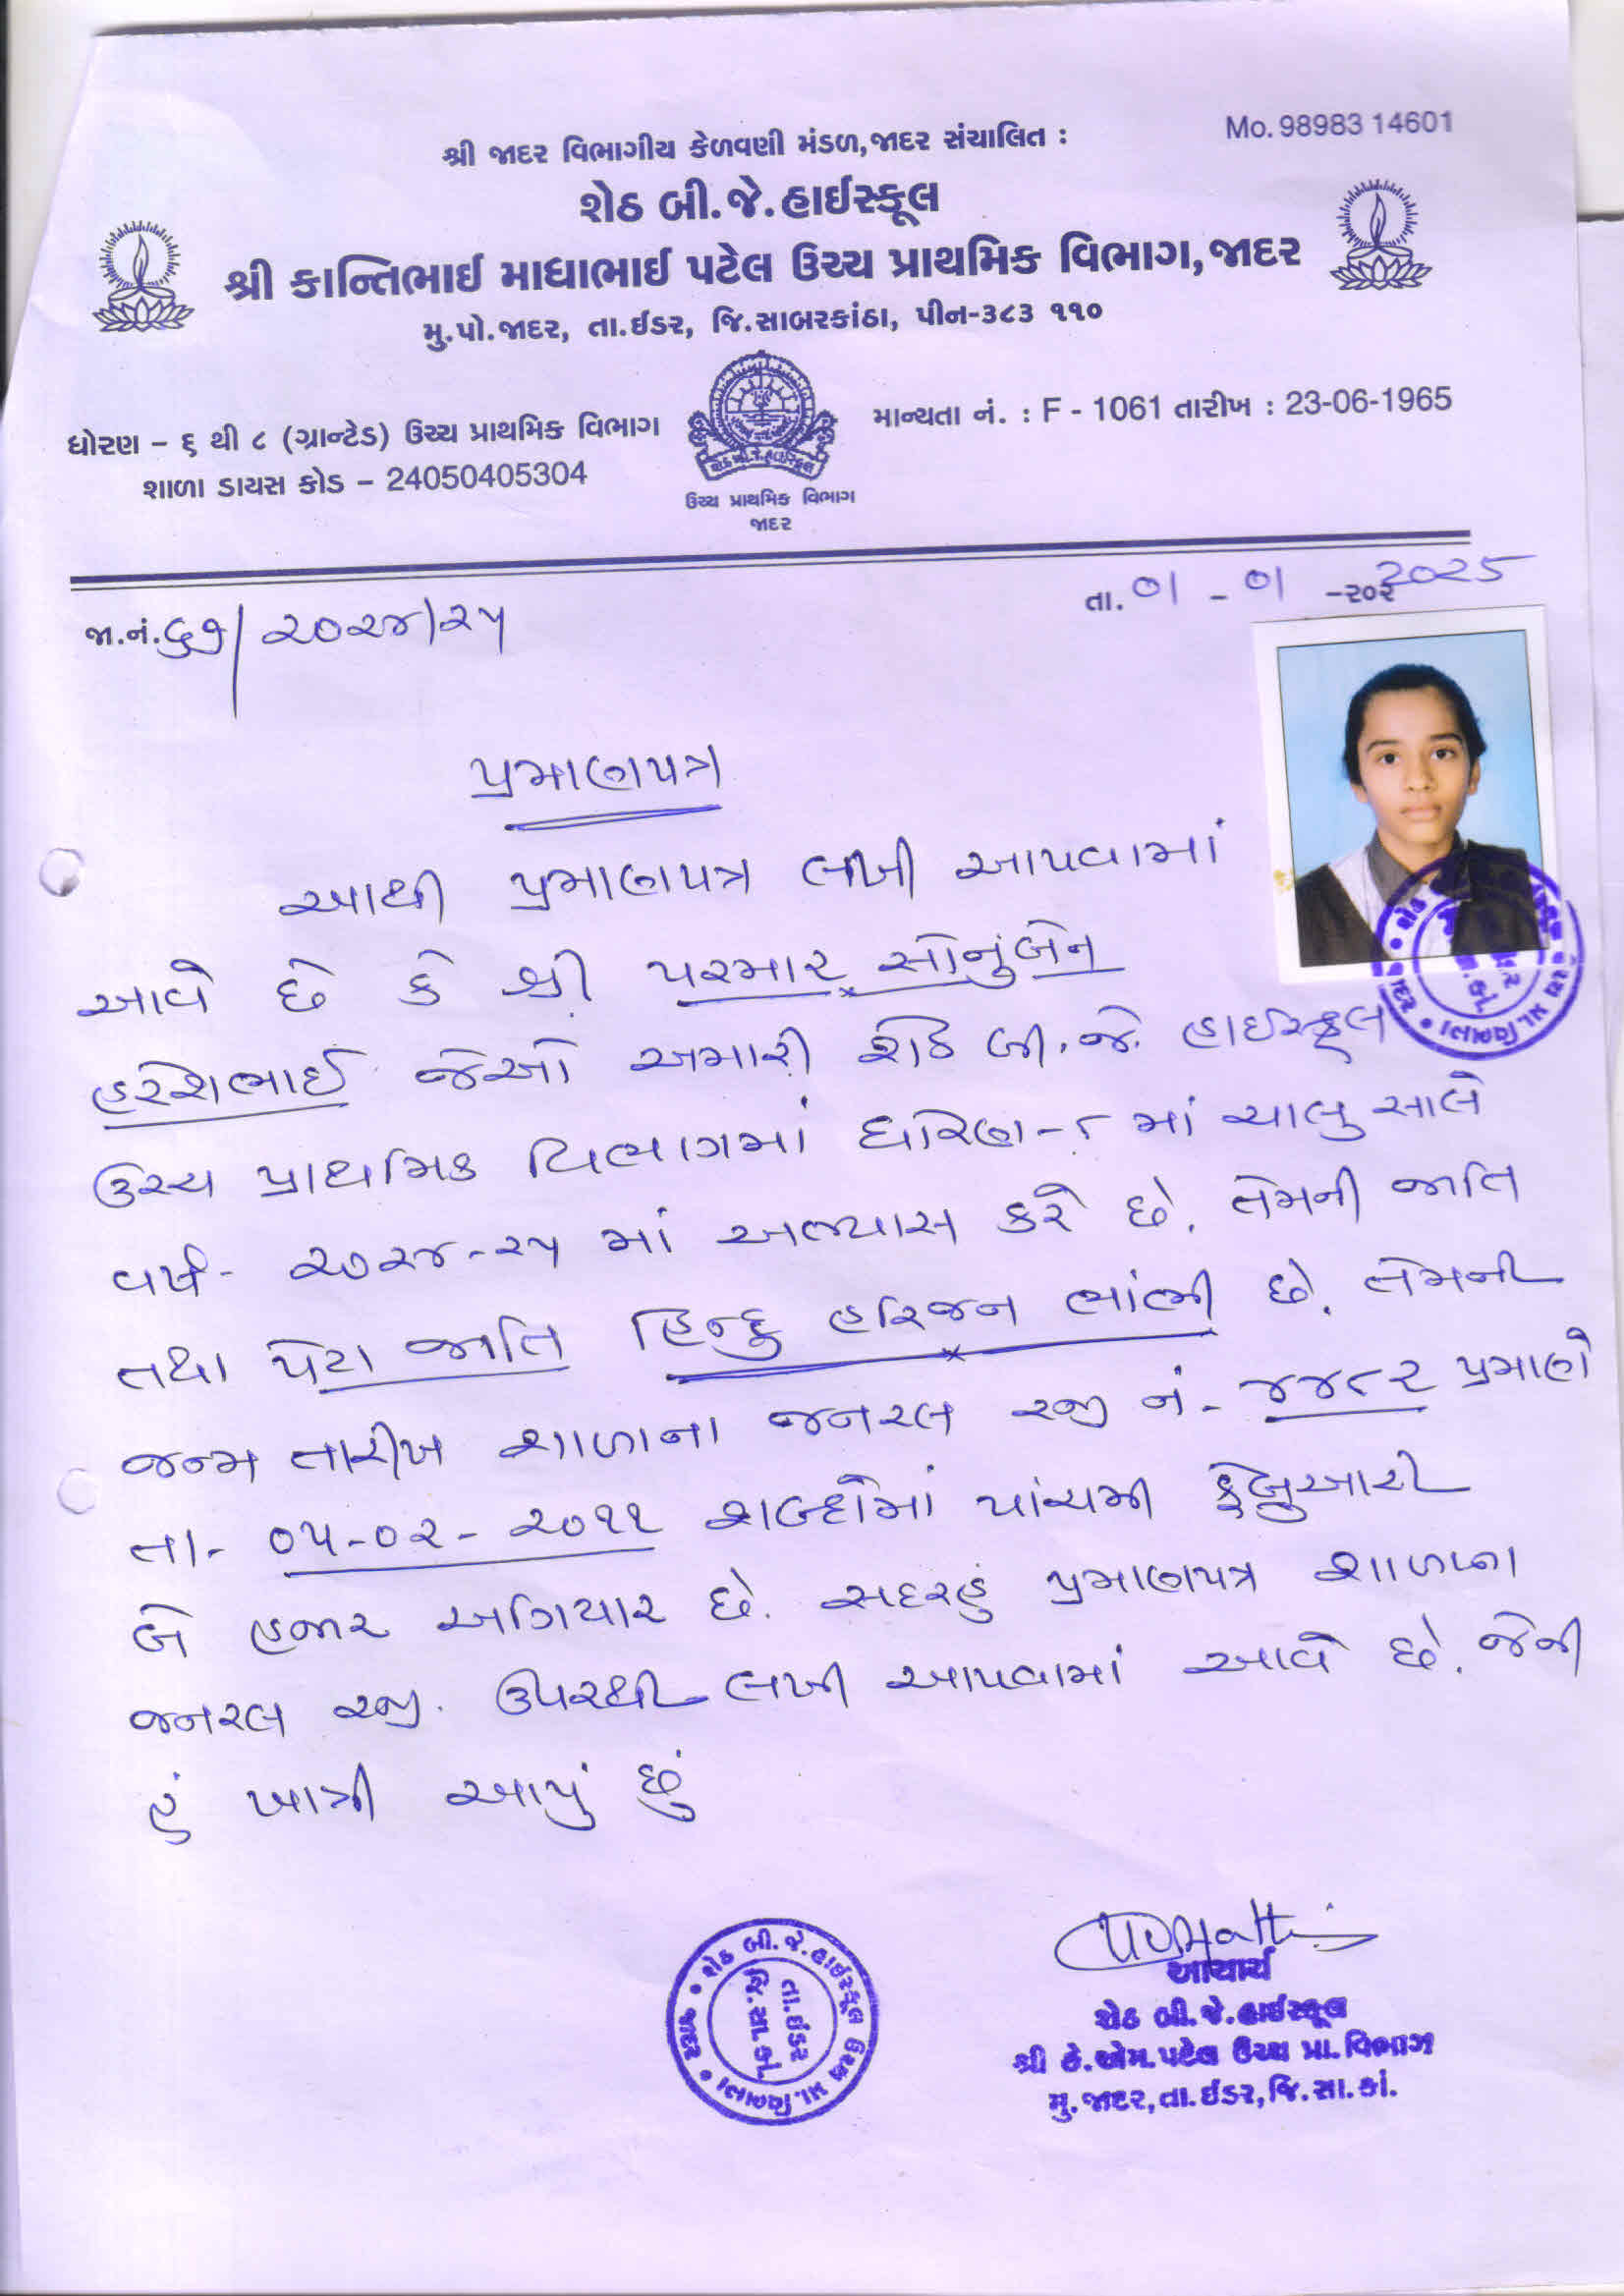 શ્રી જાદર વિભાગીય કેળવણી મંડળ,જાદર સંચાલિત :
Mo. 98983 14601
શેઠ બી.જે.હાઈસ્કૂલ
શ્રી કાન્તિભાઈ માધાભાઈ પટેલ ઉચ્ચ પ્રાથમિક વિભાગ,જાદર
મુ.પો.જાદર, તા.ઈડર, જિ.સાબરકાંઠા, પીન-૩૮૩ ૧૧૦
ધોરણ – ૬ થી ૮ (ગ્રાન્ટેડ) ઉચ્ચ પ્રાથમિક વિભાગ
માન્યતા નં. : F - 1061 તારીખ : 23-06-1965
શાળા ડાયસ કોડ – 24050405304
શેઠ બી.જે.હાઈસ્કૂલ
ઉચ્ચ પ્રાથમિક વિભાગ
જાદર
જા.નં. ૬૭/૨૦૨૪/૨૫
તા. 01 - 01 -૨૦૨ 2025
પ્રમાણપત્ર
આથી પ્રમાણપત્ર લખી આપવામાં
આવે છે કે શ્રી પરમાર સોનુંબેન
હરેશભાઈ જેઓ અમારી શેઠ બી.જે. હાઈસ્કૂલ
ઉચ્ચ પ્રાથમિક વિભાગમાં ધોરણ-૮ માં ચાલુ સાલે
વર્ષ- ૨૦૨૪-૨૫ માં અભ્યાસ કરે છે. તેમની જાતિ
તથા પેટા જાતિ હિન્દુ હરિજન ભાંભી છે. તેમની
જન્મ તારીખ શાળાના જનરલ રજી નં- ૪૪૮૨ પ્રમાણે
તા- ૦૫-૦૨-૨૦૧૧ શબ્દોમાં પાંચમી ફેબ્રુઆરી
બે હજાર અગિયાર છે. સદરહું પ્રમાણપત્ર શાળાના
જનરલ રજી. ઉપરથી લખી આપવામાં આવે છે. જેની
હું ખાત્રી આપું છું
આચાર્ય
શેઠ બી.જે.હાઈસ્કૂલ
શ્રી કે.એમ.પટેલ ઉચ્ચ પ્રા.વિભાગ
મુ.જાદર,તા.ઈડર,જિ.સા.કાં.
શેઠ બી.જે.હાઈસ્કૂલ ઉચ્ચ પ્રા.વિભાગ • જાદર •
તા.ઇડર
જિ.સા.કાં